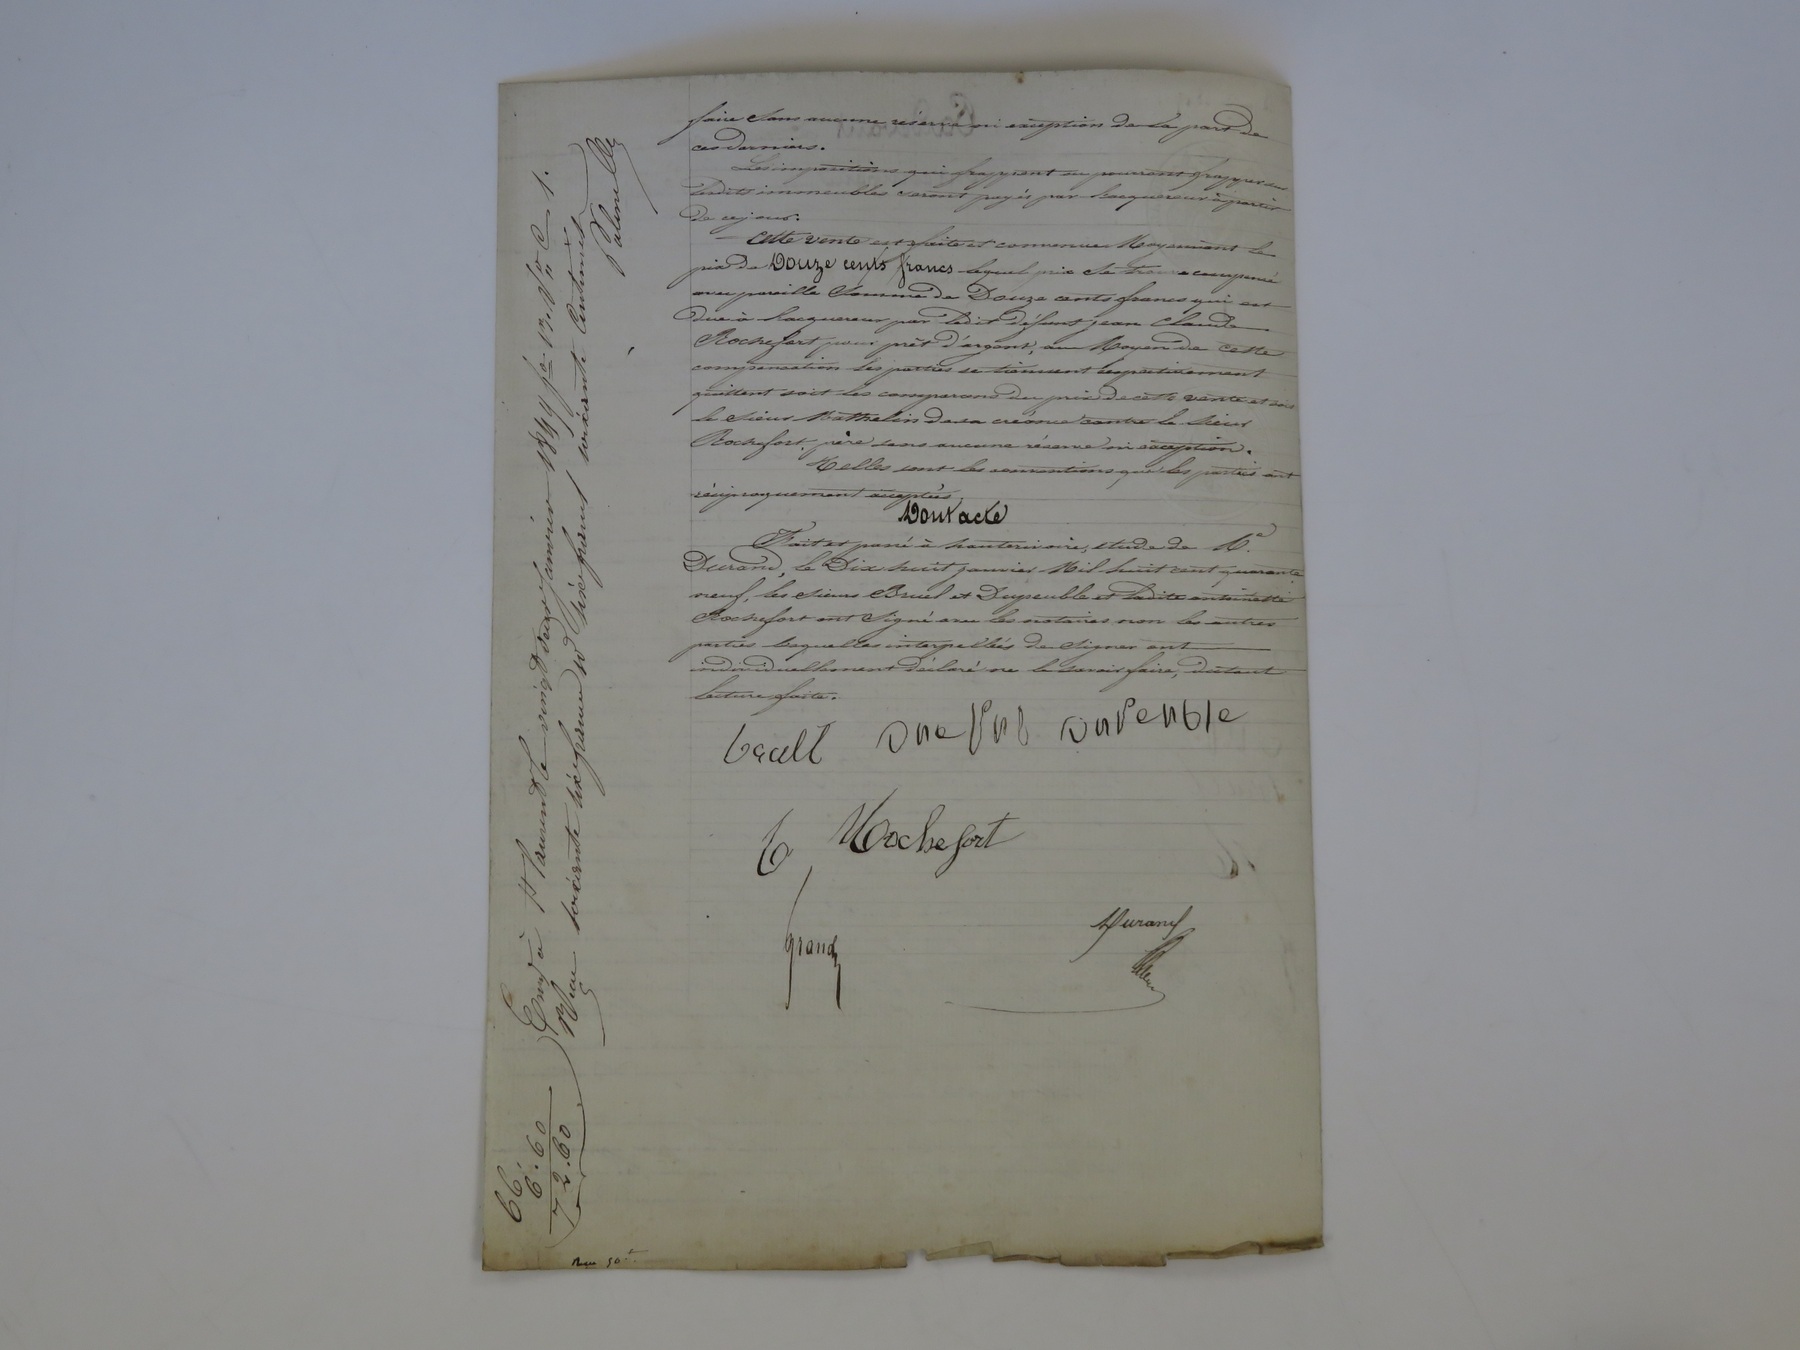 faire sans aucune réserve ni exception de la part de
ces derniers.
Les impositions qui frappent ou pourront frapper sur
lesdits immeubles seront payés par l'acquereur à partir
de ce jour.
Cette vente est faite et convenue Moyennant le
prix de Douze cents francs lequel prix se trouve compensé
avec pareille Somme de Douze cents francs qui est
due à l'acquereur par ledit défunt jean Claude
Rochefort pour prêt d'argent, au Moyen de cette
compensation les parties se tiennent respectivement
quittent soit les comparans du prix de cette vente et soit
le sieur Mathelin de sa créance contre le sieur
Rochefort père sans aucune réserve ni exception.
Telles sont les conventions que les parties ont
réciproquement acceptées
Dont acte
Fait et passé à hauterivoire, étude de Me
Durand, le Dix huit janvier Mil huit cent quarante
neuf, les sieurs Bruel et Dupeuble et ladite antoinette
Rochefort ont Signé avec les notaires non les autres
parties lesquelles interpellées de Signer ont
individuellement déclaré ne le savoir faire, de ce
lecture faite.
Dupeuble
Rochefort
grand
Durand
Enregé à St Laurent le vingt deux janvier 1849 fo 13. Vo C 1.
Reçu soixante six francs et six francs soixante Centimes
66.
6.60
72.60
Reçu 50